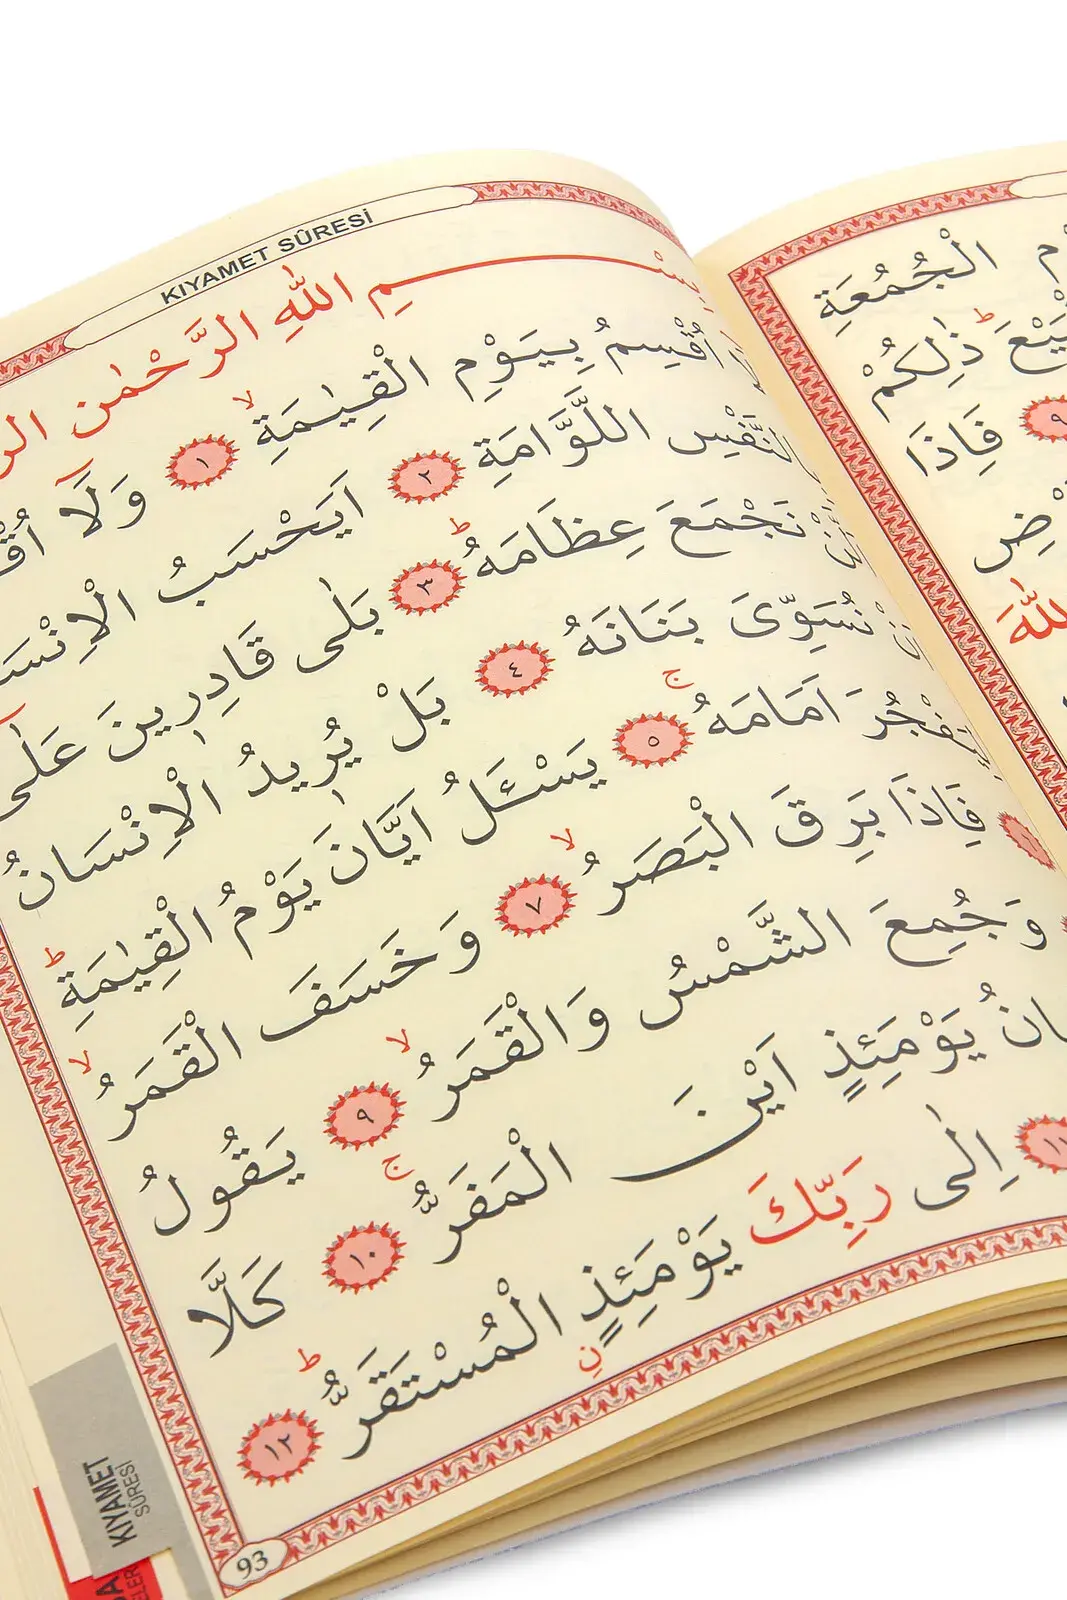 KIYAMET SÛRESİ
ـمِ اللّٰهِ الرَّحْمٰنِ
اُقْسِمُ بِيَوْمِ الْقِيٰمَةِۙ ﴿١﴾ وَلَٓا
النَّفْسِ اللَّوَّامَةِ ﴿٢﴾ اَيَحْسَبُ
نَجْمَعَ عِظَامَهُۜ ﴿٣﴾ بَلٰى قَادِرٖينَ عَلٰٓى
نُسَوِّىَ بَنَانَهُ ﴿٤﴾ بَلْ يُرٖيدُ الْاِنْسَانُ
لِيَفْجُرَ اَمَامَهُۚ ﴿٥﴾ يَسْـَٔلُ اَيَّانَ يَوْمُ الْقِيٰمَةِۜ
فَاِذَا بَرِقَ الْبَصَرُۙ ﴿٧﴾ وَخَسَفَ الْقَمَرُۙ
وَجُمِعَ الشَّمْسُ وَالْقَمَرُۙ ﴿٩﴾ يَقُولُ
ـانُ يَوْمَئِذٍ اَيْنَ الْمَفَرُّۚ ﴿١٠﴾ كَلَّا
﴿١١﴾ اِلٰى رَبِّكَ يَوْمَئِذٍ الْمُسْتَقَرُّۜ ﴿١٢﴾
ن
93
KIYAMET
SÛRESİ
الْجُمُعَةِ
ذٰلِكُمْ
﴿٩﴾ فَاِذَا